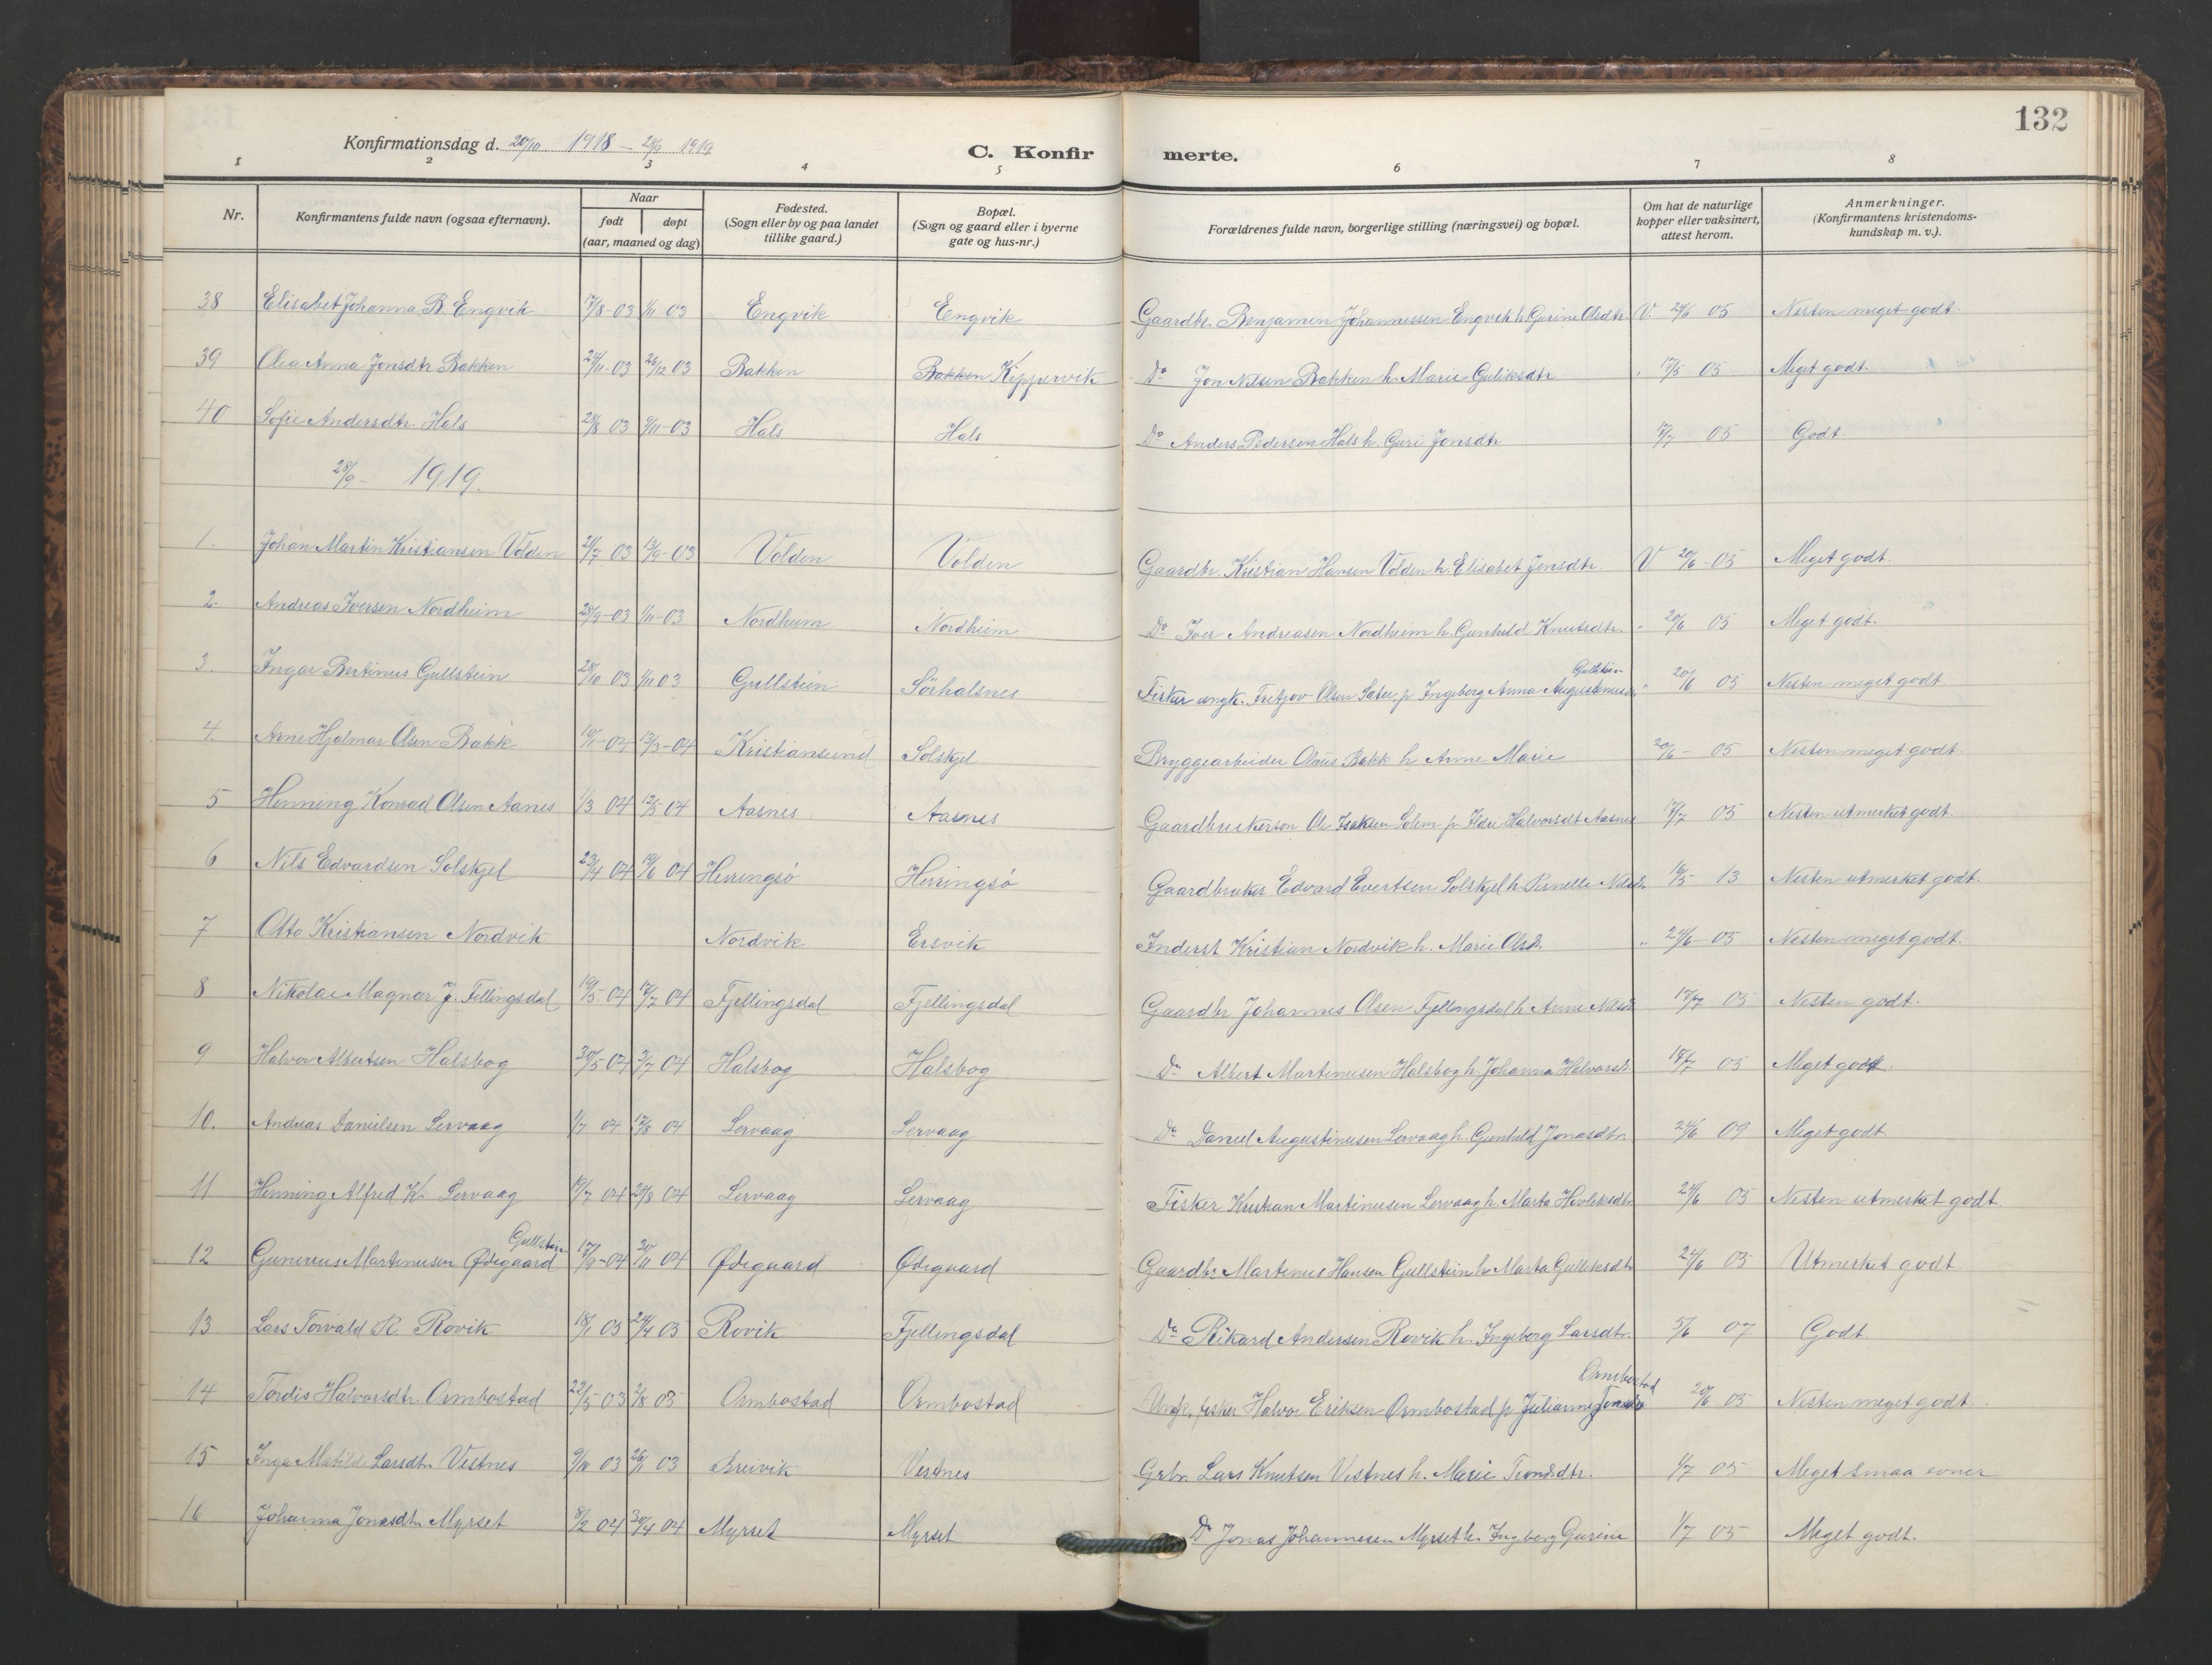 132
Konfirmationsdag d. 20/10 1918 – 28/9 1919
C. Konfirmerte.
1 2 3 4 5 6 7 8
Nr. | Konfirmantens fulde navn (ogsaa efternavn). | Naar født | døpt (aar, maaned og dag) | Fødested. (Sogn eller by og paa landet tillike gaard.) | Bopæl. (Sogn og gaard eller i byerne gate og hus-nr.) | Forældrenes fulde navn, borgerlige stilling (næringsvei) og bopæl. | Om hat de naturlige kopper eller vaksinert, attest herom. | Anmerkninger. (Konfirmantens kristendomskundskap m. v.).
38 Elisabet Johanna B. Engvik 17/8-03 1/11 03 Engvik Engvik Gaardbr. Benjamin Johannessen Engvik h. Gurine Olsdtr. V 24/6 05 Nesten meget godt
39 Olea Anna Jonsdtr Bakken 24/11-03 26/12 03 Bakken Bakken Kippervik Do Jon Nilsen Bakken h. Marie Guliksdtr " 17/5 05 Meget godt.
40 Sofie Andersdtr. Hals 28/8 03 /11-03 Hals Hals Do Anders Pedersen Hals h. Guri Jonsdtr 17/7 05 Godt
28/9- 1919.
1. Johan Martin Kristiansen Volden 21/7 03 13/9-03 Volden Volden Gaardbr. Kristian Hansen Volden h. Elisabet Jensdtr. V 20/6-05 Meget godt.
2. Andreas Iversen Nordheim 28/9-03 1/11-03 Nordheim Nordheim Do Iver Andreasen Nordheim h. Gunhild Knutsdtr. " 20/6 05 Meget godt.
3. Ingar Bertinus Gullstein 28/10 03 1/11 03 Gullstein Sørhalsnes Fisker ungk. Fritjov Olsen Sæter p Ingeborg Anna Augustinusd. Gullstein " 20/6 05 Nesten meget godt
4. Arne Hjalmar Olsen Bakk 10/1-04 13/3-04 Kristiansund Solskjel Bryggearbeider Olaus Bakk h Anne Marie 20/6- 05 Nesten meget godt
5 Henning Konrad Olsen Aanes 1/3 04 12/5 04 Aasnes Aasnes Gaardbrukersøn Ole Isaksen Solem p. Ildri Halvorsdt Aasnes 17/7 05 Nesten utmerket godt.
6 Nils Edvardsen Solskjel 23/4 04 19/6 04 Herringsø Herringsø Gaardbruker Edvard Evertsen Solskjel h Pernella Nilsdtr 16/5 - 13 Nesten utmerket godt.
7 Otto Kristiansen Nordvik Nordvik Ersvik Inderst Kristian Nordvik h. Marie Olsdr. " 24/6-05 Nesten meget godt.
8 Nikolai Magnar J. Fellingsdal 19/5-04 17/7 04 Fjellingsdal Fjellingsdal Gaardbr Johannes Olsen Fjellingsdal h Anne Nilsdtr 17/7-05 Nesten godt.
9 Halvor Albertsen Halsbog 30/5-04 3/7 04 Halsbog Halsbog Do Albert Martinusen Halsbog h. Johanna Halvorsdr. 18/7 05 Meget godt.
10. Andreas Danielsen Lervaag 1/7 04 17/8 04 Lervaag Lervaag Do Daniel Augustinusen Lervaag h. Gunhild Jonasdtr. 24/6 09 Meget godt
11 Henning Alfred K. Lervaag 19/7 04 28/8 04 Lervaag Lervaag Fisker Kristian Martinusen Lervaag h. Marta Hovliksdtr. 24/6 05 Nesten utmerket godt
12 Gunerius Martinusen Ødegaard Gullstein 17/9-04 30/11 04 Ødegaard Ødegaard Gaardbr. Martinus Hansen Gullstein h Marta Gulliksdtr 24/6 05 Utmerket godt.
13 Lars Torvald R. Rovik 18/1 05 24/4 05 Rovik Fjellingsdal Do Rikard Andersen Rovik h. Ingeborg Larsdtr. 5/6 07 Godt.
14 Tordis Halvorsdtr. Ormbostad 22/5 03 2/8 03 Ormbostad Ormbostad Ungk. fisker Halvor Eriksen Ormbostad p Julianne Jonsdtr Ormbostad 20/6 05 Nesten meget godt.
15 Inga Matilde Larsdtr. Vestnes 9/10 03 26/11 03 Breivik Vestnes Grbr. Lars Knutsen Vestnes h. Marie Tronsdtr. 1/7 05 Meget smaa evner
16 Johanna Jonasdtr. Myrset 8/2 04 30/4 04 Myrset Myrset Do Jonas Johannesen Myrset h. Ingeborg Gurine 1/7 05 Meget godt.